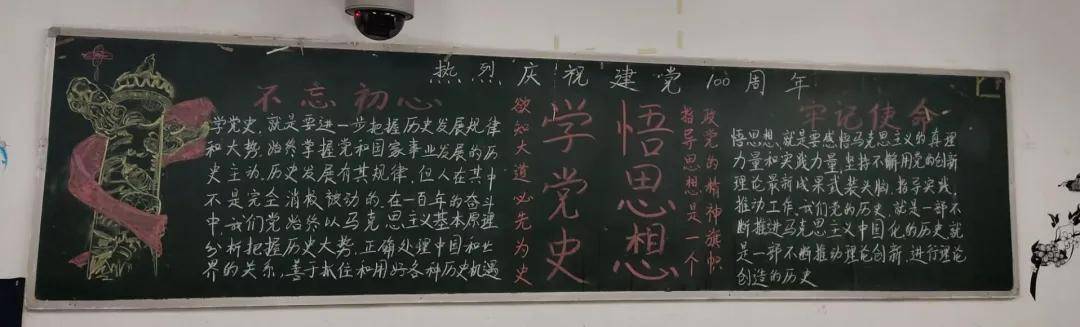 热烈庆祝建党100周年
不忘初心
学党史，就是要进一步把握历史发展规律
和大势，始终掌握党和国家事业发展的历
史主动，历史发展有其规律，但人在其中
不是完全消极被动的，在一百年的奋斗
中，我们党始终以马克思主义基本原理
分析把握历史大势，正确处理中国和世
界的关系，善于抓住和用好各种历史机遇
欲知大道必先为史
学党史
悟思想
政党的精神旗帜
指导思想是一个
牢记使命
悟思想，就是要感悟马克思主义的真理
力量和实践力量，坚持不懈用党的创新
理论最新成果武装头脑，指导实践，
推动工作，我们党的历史，就是一部不
断推进马克思主义中国化的历史，就
是一部不断推动理论创新，进行理论
创造的历史